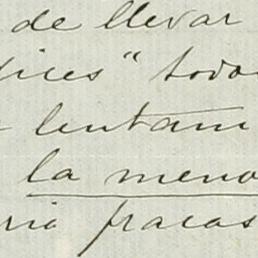 de llevar
ices" todo
lentam
la meno
ria fracas